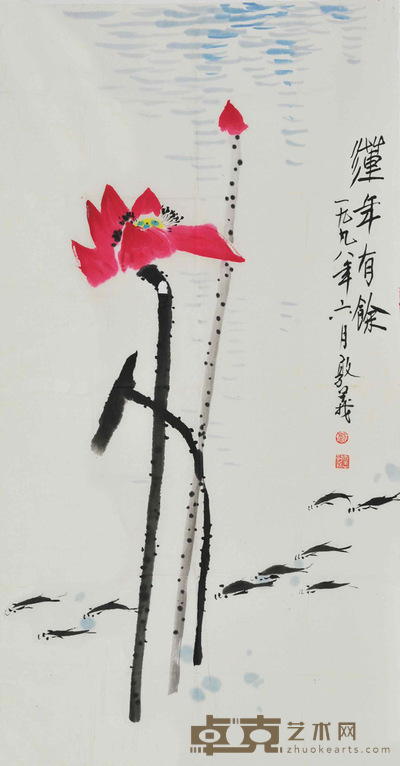 蓮年有餘
一九九八年六月敦義
卓克艺术网
zhuokearts.com